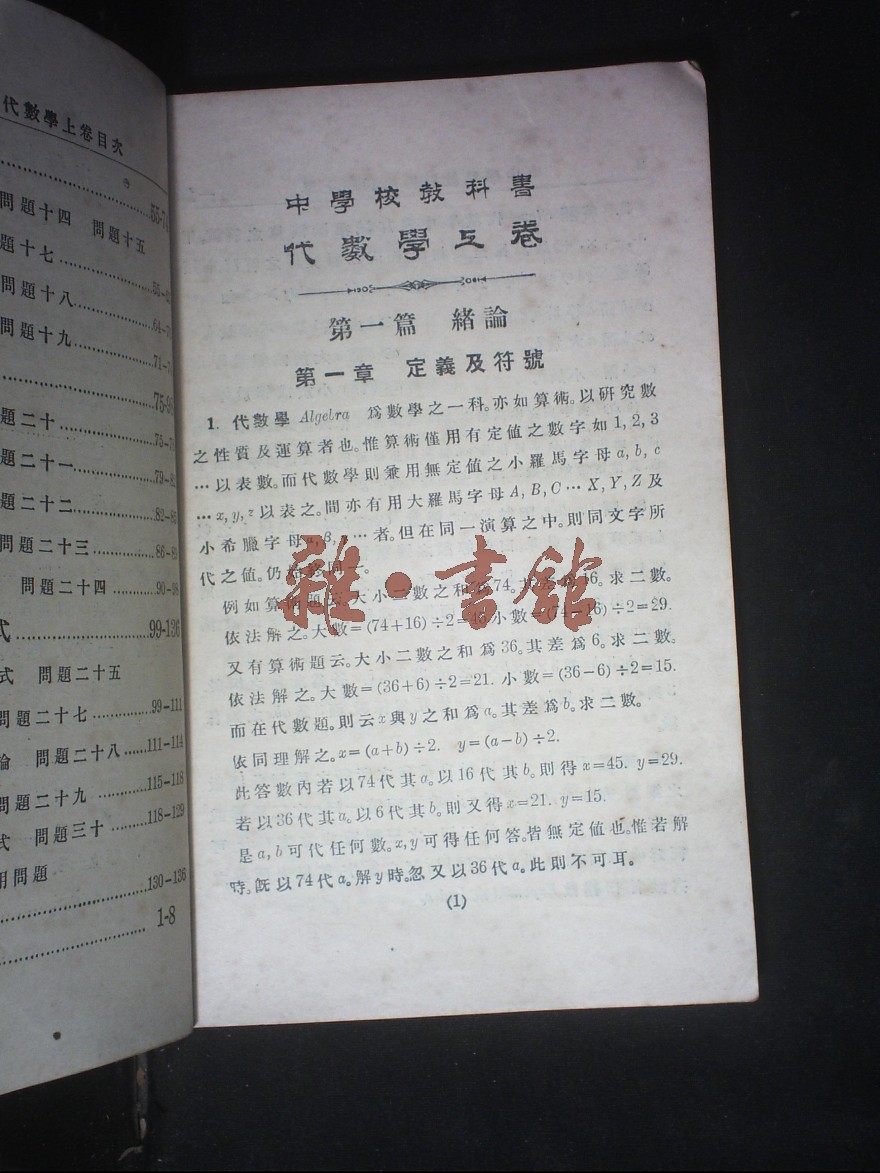 代數學上卷目次
問題十四 問題十五
題十七
55-6
問題十八
64-7
問題十九
71-7
75-9
題二十
75-7
題二十一
79-8
題二十二
82-85
問題二十三
86-8
問題二十四
90-98
式 99-136
式 問題二十五
問題二十七 99-111
論 問題二十八 111-114
問題二十九 115-118
式 問題三十 118-129
用問題
130-136
1-8
中學校教科書
代數學上卷
第一篇 緒論
第一章 定義及符號
1. 代數學 Algebra 爲數學之一科。亦如算術。以研究數
之性質及運算者也。惟算術僅用有定值之數字如1, 2, 3
…以表數。而代數學則兼用無定值之小羅馬字母a, b, c
…x, y, z以表之。間亦有用大羅馬字母A, B, C…X, Y, Z及
小希臘字母α, β, …者。但在同一演算之中。則同文字所
代之值。仍
雜·書館
例如算術題云。大小二數之和爲74。其差爲16。求二數。
依法解之。大數=(74+16)÷2=45. 小數=(74-16)÷2=29.
又有算術題云。大小二數之和爲36。其差爲6。求二數。
依法解之。大數=(36+6)÷2=21. 小數=(36-6)÷2=15.
而在代數題。則云x與y之和爲a。其差爲b。求二數。
依同理解之。x=(a+b)÷2. y=(a-b)÷2.
此答數內若以74代其a。以16代其b。則得x=45. y=29.
若以36代其a。以6代其b。則又得x=21. y=15.
是a, b可代任何數。x, y可得任何答。皆無定值也。惟若解
時。旣以74代a。解y時。忽又以36代a。此則不可耳。
(1)